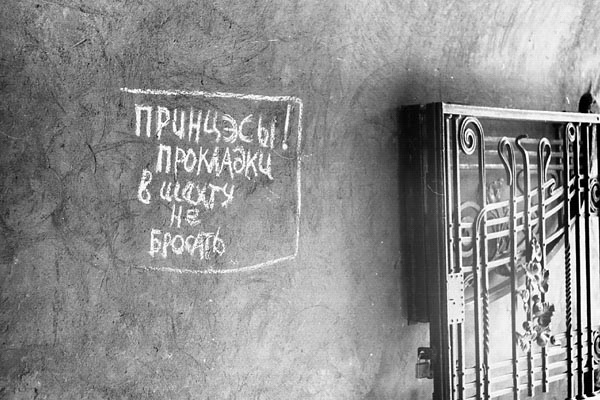 ПРИНЦЭСЫ!
ПРОКЛАДКИ
В ШАХТУ
НЕ
БРОСАТЬ